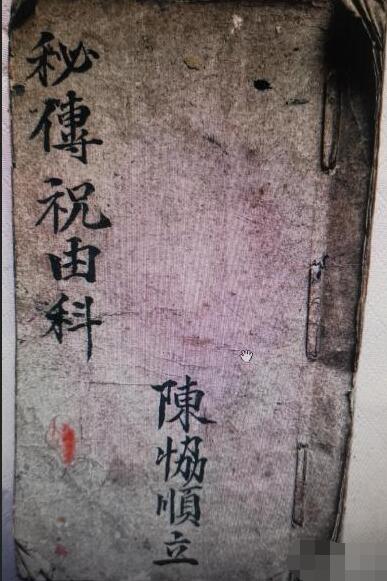 秘傳祝由科
陳恊順立